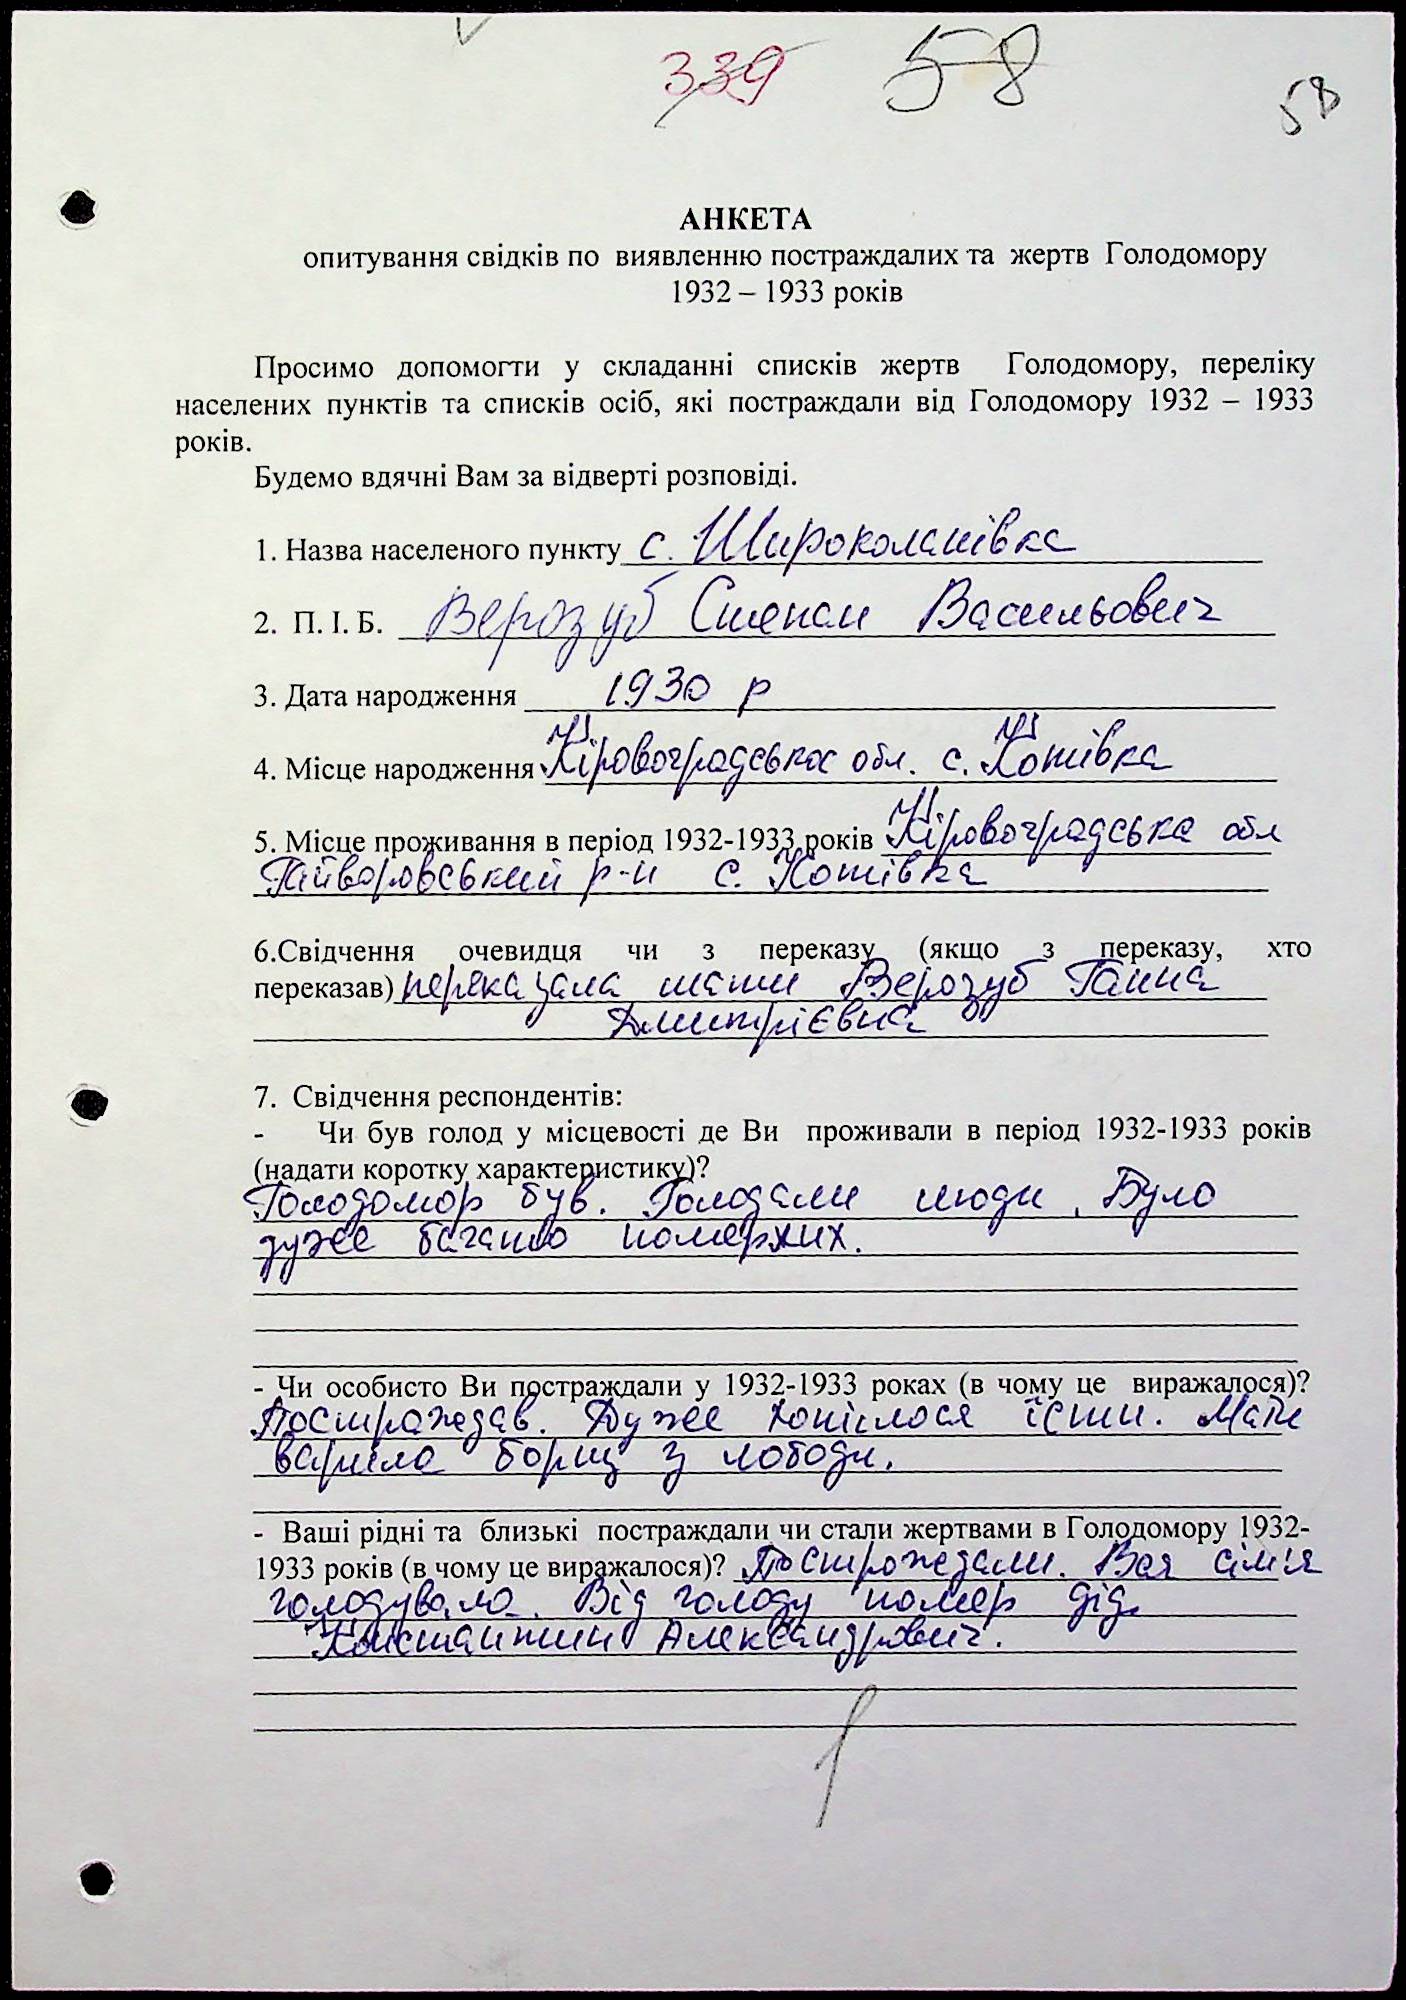 339 58
58
АНКЕТА
опитування свідків по виявленню постраждалих та жертв Голодомору
1932 – 1933 років
Просимо допомогти у складанні списків жертв Голодомору, переліку
населених пунктів та списків осіб, які постраждали від Голодомору 1932 – 1933
років.
Будемо вдячні Вам за відверті розповіді.
1. Назва населеного пункту с. Широколанівка
2. П. І. Б. Верозуб Степан Васильович
3. Дата народження 1930 р
4. Місце народження Кіровоградська обл. с. Котівка
5. Місце проживання в період 1932-1933 років Кіровоградська обл
Гайворовський р-н с. Котівка
6.Свідчення очевидця чи з переказу (якщо з переказу, хто
переказав) переказала мати Верозуб Ганна
Дмитрієвна
7. Свідчення респондентів:
- Чи був голод у місцевості де Ви проживали в період 1932-1933 років
(надати коротку характеристику)?
Голодомор був. Голодали люди. Було
дуже багато померших.
- Чи особисто Ви постраждали у 1932-1933 роках (в чому це виражалося)?
Постраждав. Дуже хотілося їсти. Мати
варила борщ з лободи.
- Ваші рідні та близькі постраждали чи стали жертвами в Голодомору 1932-
1933 років (в чому це виражалося)? Постраждали. Вся сім'я
голодувала. Від голоду помер дід
Констайтин Александрович.